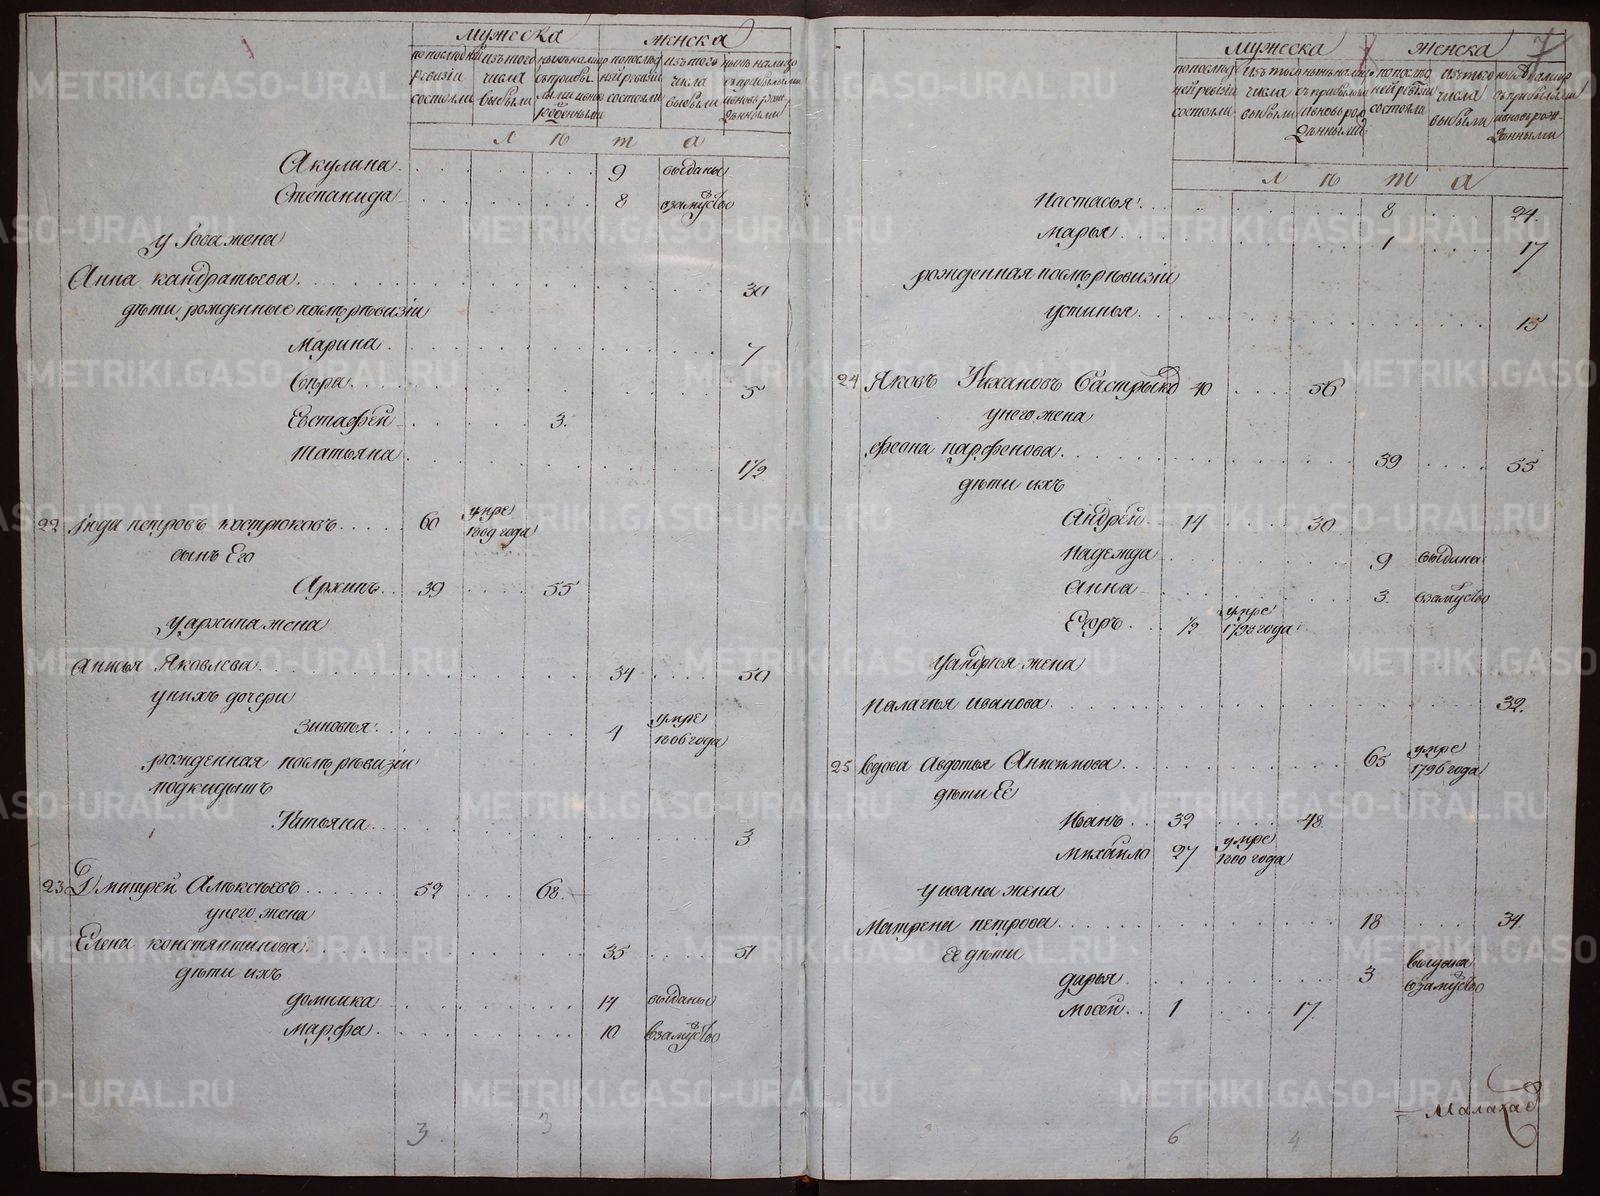 мужеска женска
по последней ревизіи состояли изъ того числа выбыли нынѣ на лицо съ прибылыми и вновь рожденными по последней ревизіи состояли изъ того числа выбыли нынѣ на лицо съ прибылыми и вновь рожденными
лѣта
Акулина 9 выданы
Степанида 8 взамуство
у жена
Анна кандратьева 30
дѣти рожденные послѣ рѣвизіи
Марина 7
5
Евстафей 3
татьяна 1½
22 Iюда петровъ кострюковъ 60 умре 1809 года
сынъ Его
Архипъ 39 55
у архипа жена
Анисья Яковлева 34 50
у нихъ дочери
Зиновья 4 умре 1806 года
рожденная послѣ рѣвизіи
подкидышъ
Татьяна 3
23 Дмитрей Алексѣевъ 52 68
у него жена
Елена констянтинова 35 51
дѣти ихъ
домника 14 выданы
марфа 10 взамуство
3 3
7
мужеска женска
по последней ревизіи состояли изъ того числа выбыли нынѣ на лицо съ прибылыми и вновь рожденными по последней ревизіи состояли изъ того числа выбыли нынѣ на лицо съ прибылыми и вновь рожденными
лѣта
Настасья 8 24
марья 1 17
рожденная послѣ рѣвизіи
устинья 15
24 Яковъ Тихановъ Бастрыко 40 56
у него жена
феона парфенова 39 55
дѣти ихъ
Андрей 14 30
Надежда 9 выдана
анна 3 взамуство
Егоръ ½ умре 1796 года
у андрея жена
Палагѣя иванова 32
25 вдова Авдотья Анисимова 65 умре 1796 года
дѣти Ее
Иванъ 32 48
михайло 27 умре 1800 года
у ивана жена
Матрена петрова 18 34
Ее дѣти
дарья 3 выдана взамуство
мосей 1 17
Малахад
6 4
METRIKI.GASO-URAL.RU